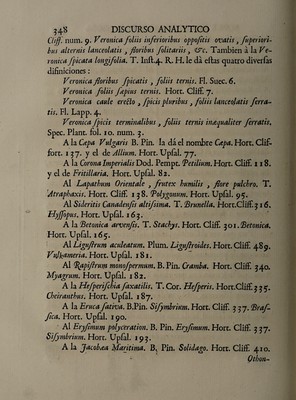 348 DISCURSO ANALYTICO
Cliff. num. 9. Veronica foliis inferioribus oppositis ovatis, superiori-
bus alternis lanceolatis, floribus solitariis, &c. Tambien à la Ve-
ronica spicata longifolia. T. Inst.4. R. H. le dà estas quatro diversas
difiniciones:
Veronica floribus spicatis, foliis ternis. Fl. Suec. 6.
Veronica foliis sæpius ternis. Hort. Cliff. 7.
Veronica caule erecto, spicis pluribus, foliis lanceolatis serra-
tis. Fl. Lapp. 4.
Veronica spicis terminalibus, foliis ternis inæqualiter serratis.
Spec. Plant. fol. 10. num. 3.
A la Cepa Vulgaris B. Pin. la dá el nombre Cepa. Hort. Clif-
fort. 137. y el de Allium. Hort. Upsal. 77.
A la Corona Imperialis Dod. Pempt. Petilium. Hort. Cliff. 118.
y el de Fritillaria. Hort. Upsal. 82.
Al Lapathum Orientale, frutex humilis, flore pulchro. T.
Atraphaxis. Hort. Cliff. 138. Polygonum. Hort. Upsal. 95.
Al Sideritis Canadensis altissima. T. Brunella. Hort.Cliff.316.
Hyssopus. Hort. Upsal. 163.
A la Betonica arvensis. T. Stachys. Hort. Cliff. 301. Betonica.
Hort. Upsal. 165.
Al Ligustrum aculeatum. Plum. Ligustroides. Hort. Cliff. 489.
Volkameria. Hort. Upsal. 181.
Al Rapistrum monospermum. B. Pin. Crambe. Hort. Cliff. 340.
Myagrum. Hort. Upsal. 182.
A la Hesperischia saxatilis. T. Cor. Hesperis. Hort.Cliff.335.
Cheiranthus. Hort. Upsal. 187.
A la Eruca sativa. B.Pin. Sisymbrium. Hort. Cliff. 337. Bras-
sica. Hort. Upsal. 190.
Al Erysimum polyceration. B. Pin. Erysimum. Hort. Cliff. 337.
Sisymbrium. Hort. Upsal. 193.
A la Jacobæa Maritima. B. Pin. Solidago. Hort. Cliff. 410.
Othon-